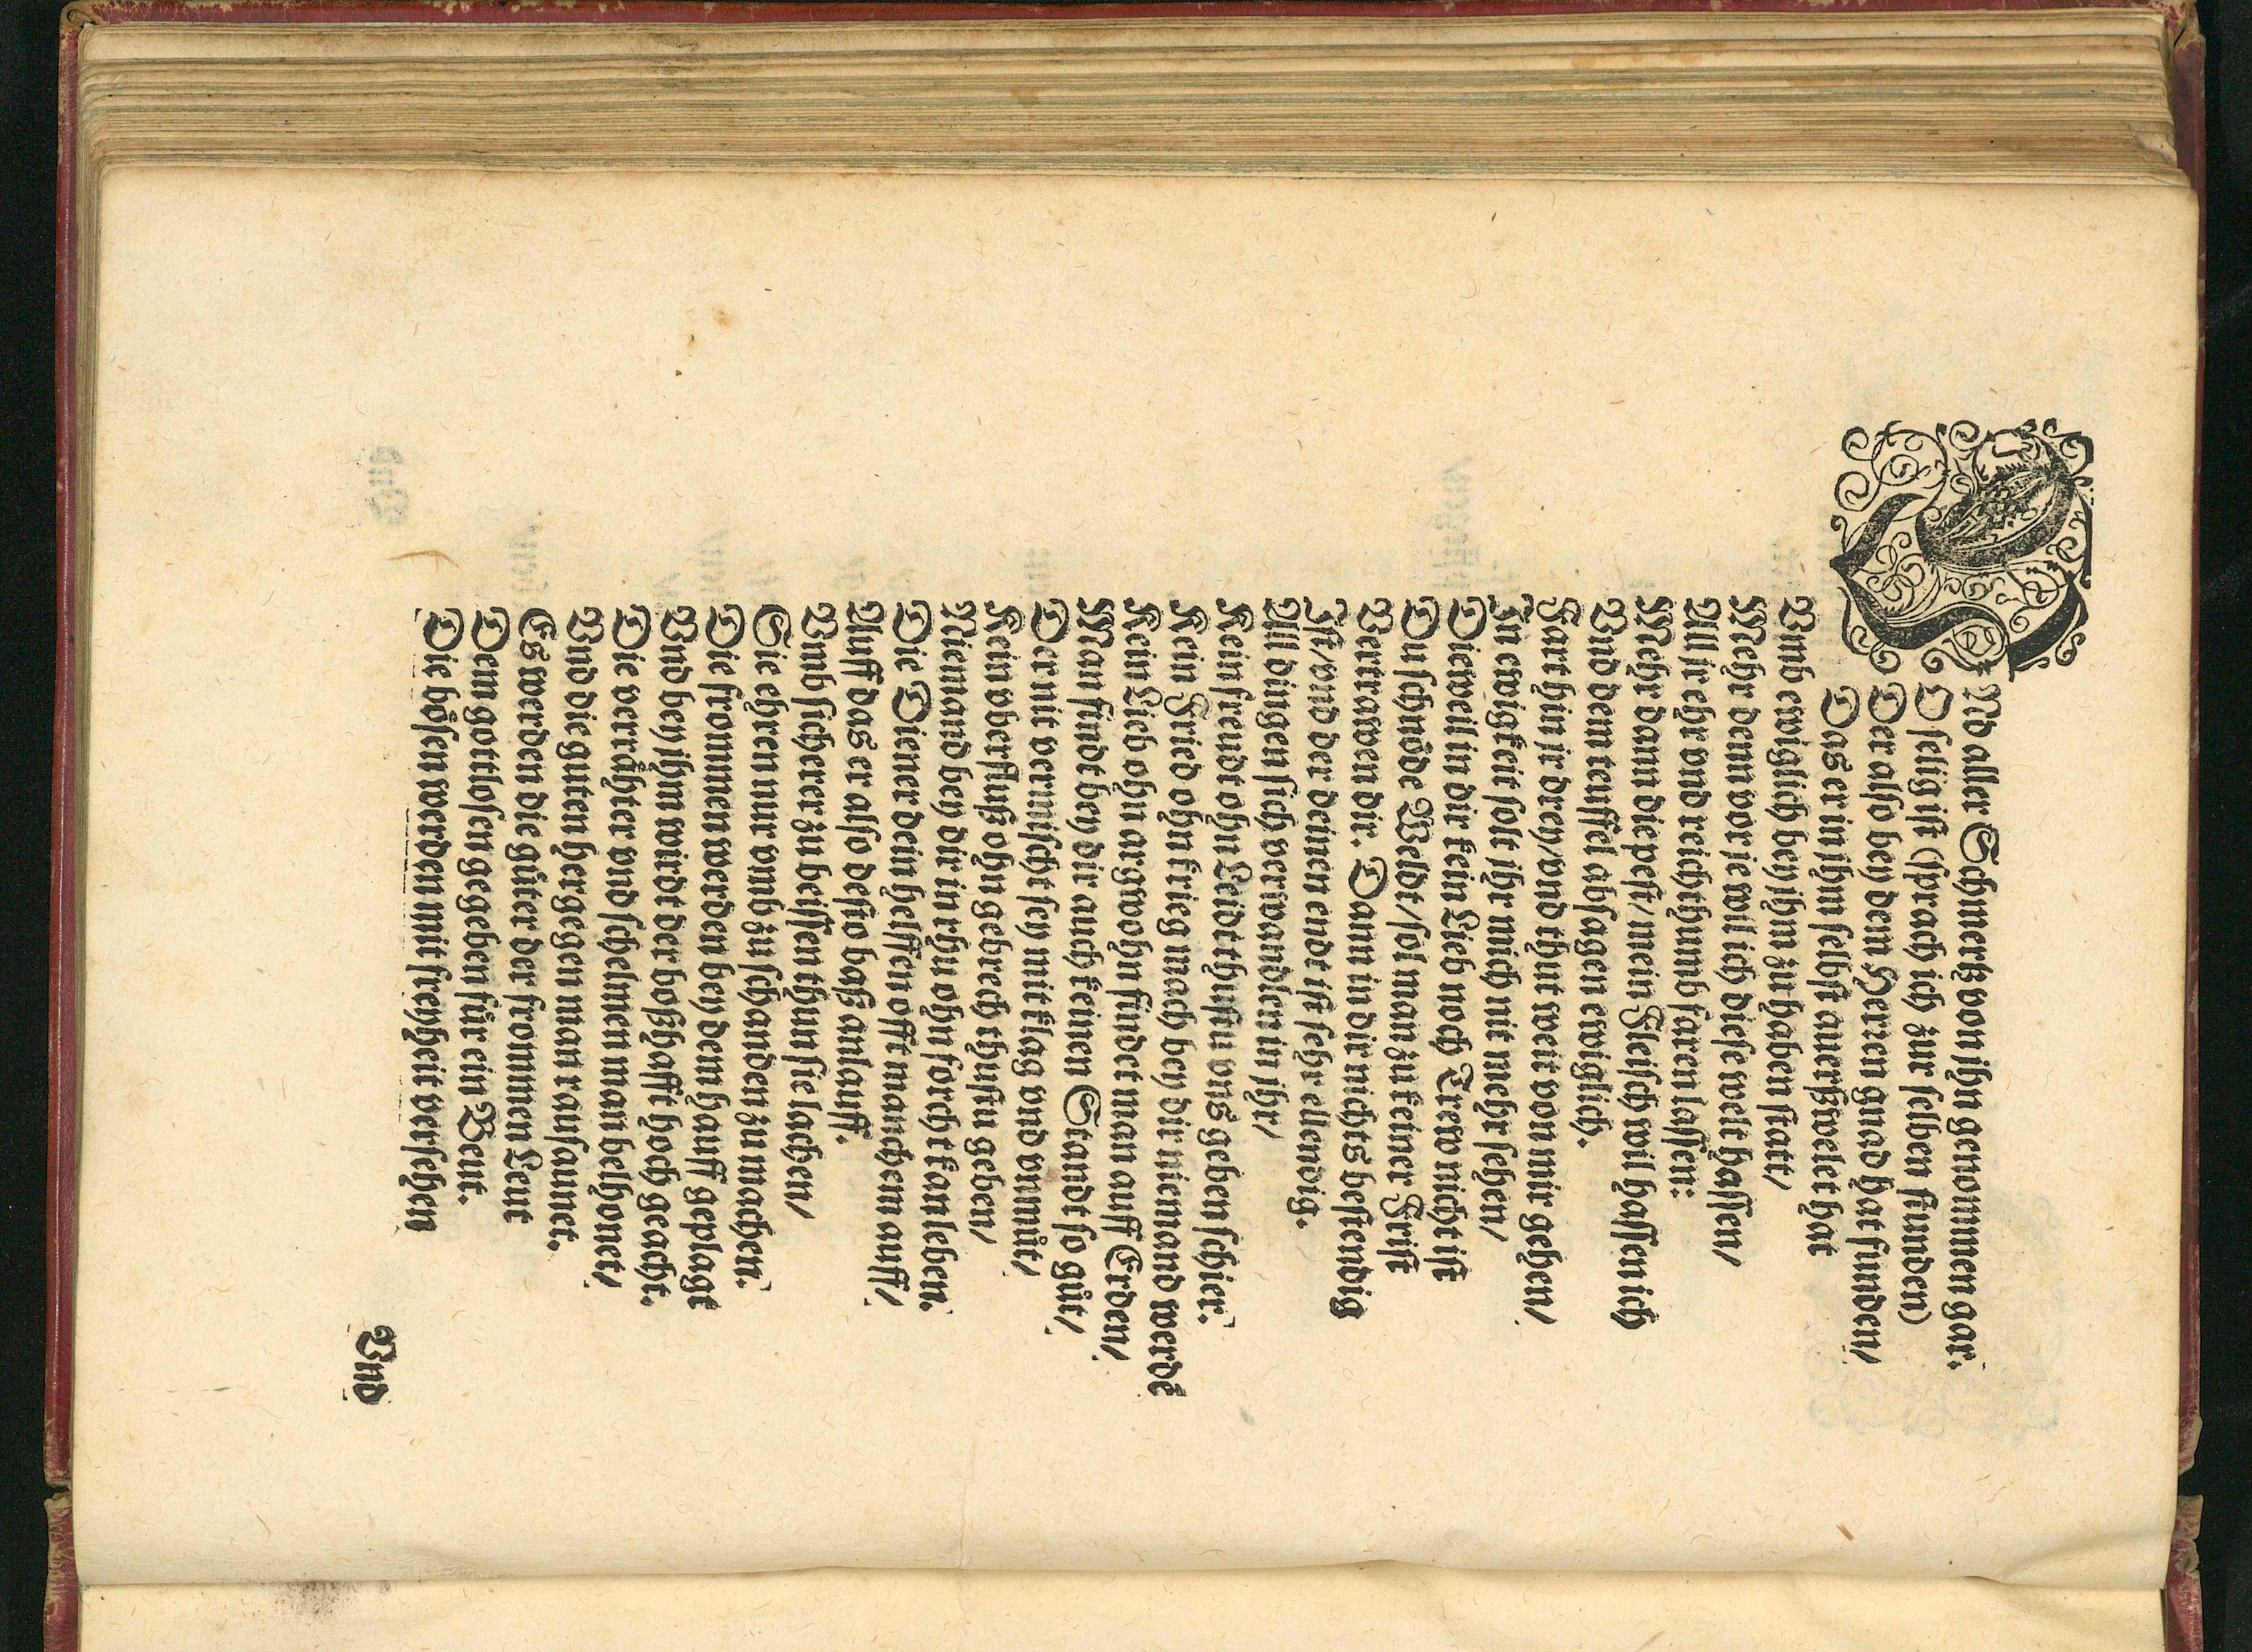 VNd aller Schmertz von jhn genommen gar.
O selig ist (sprach ich zur selben stunden)
Der also bey dem Herren gnad hat funden/
Das er in jhm selbst auerßwelet hat
Vmb ewiglich bey jhm zů haben statt/
Mehr denn vor je wil ich diese welt hassen/
All jr ehr vnd reichthumb faren lassen:
Mehr dann die pest/ mein Fleisch wil hassen ich
Vnd dem teuffel absagen ewiglich.
Fart hin jr drey/ vnd thut weit von mir gehen/
In ewigkeit solt jhr mich nit mehr sehen/
Dieweil in dir kein Lieb noch Trew nicht ist
Du schnöde Weldt/ sol man zu keiner Frist
Vertrawen dir. Dann in dir nichts bestendig
Ist/ vnd der deinen endt ist sehr ellendig.
All dingen sich verwandlen in jhr/
Kein freudt ohn Leidt thustu vns geben schier.
Kein Fried ohn krieg mach bey dir niemand werdē
Kein Lieb ohn argwohn findet man auff Erden/
Man findt bey dir auch keinen Standt so gůt/
Der nit vermischt sey mit klag vnd vnmůt/
Kein vberfluß ohn gebrech thustu geben/
Niemand bey dir in rhu ohn forcht kan leben.
Die Diener dein helffen offt manchem auff/
Auff das er also desto baß anlauff.
Vmb sicherer zu beissen thun sie lachen/
Sie ehren nur vmb zu schanden zu machen.
Die frommen werden bey dem hauff geplagt
Vnd bey jhm wirdt der boßhafft hoch geacht.
Die verrähter vnd schelmen man belhonet/
Vnd die guten hergegen man raufaunet.
Es werden die gůter der frommen Leut
Dem gottlosen gegeben für ein Beut.
Die bösen werden mit freyheit versehen
Vnd